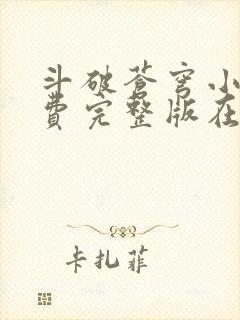 斗破苍穹小
费完整版在
卡扎菲